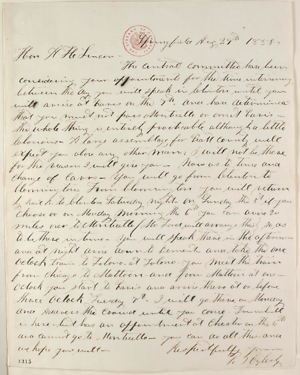 Springfield Aug. 29th 1858.
Hon A. Lincoln
The central committee have been
considering your appointment for the time intervening
between the day you will speak in Clinton until you
will arrive at Paris on the 7th and have determined
that you must not pass Monticello or omit Paris —
the whole thing is entirely practicable although a little
laborious — A large assembly for Piatt County will
expect you
for the reasons I will give you — Now as to time and
change of cars — You will go from Clinton to
Bloomington From Bloomington you will return
back to Clinton Saturday night or Sunday the 5th if you
choose or on Monday morning the 6th you can
miles over to Monticello
to be there in time You will speak there in the afternoon
and at night
o'clock train to Tolono at Tolono you meet the train
from Chicago to Mattoon and from Mattoon at one
o'clock you start to Paris and arrive there at or before
three o'clock Tuesday 7th. I will go there on Monday
and the crowd until you come Trumbull
has an appointment at Chester on the 6th
and cannot go to Monticello — you can do all this and
we hope you will —
Respectfully yours
1215